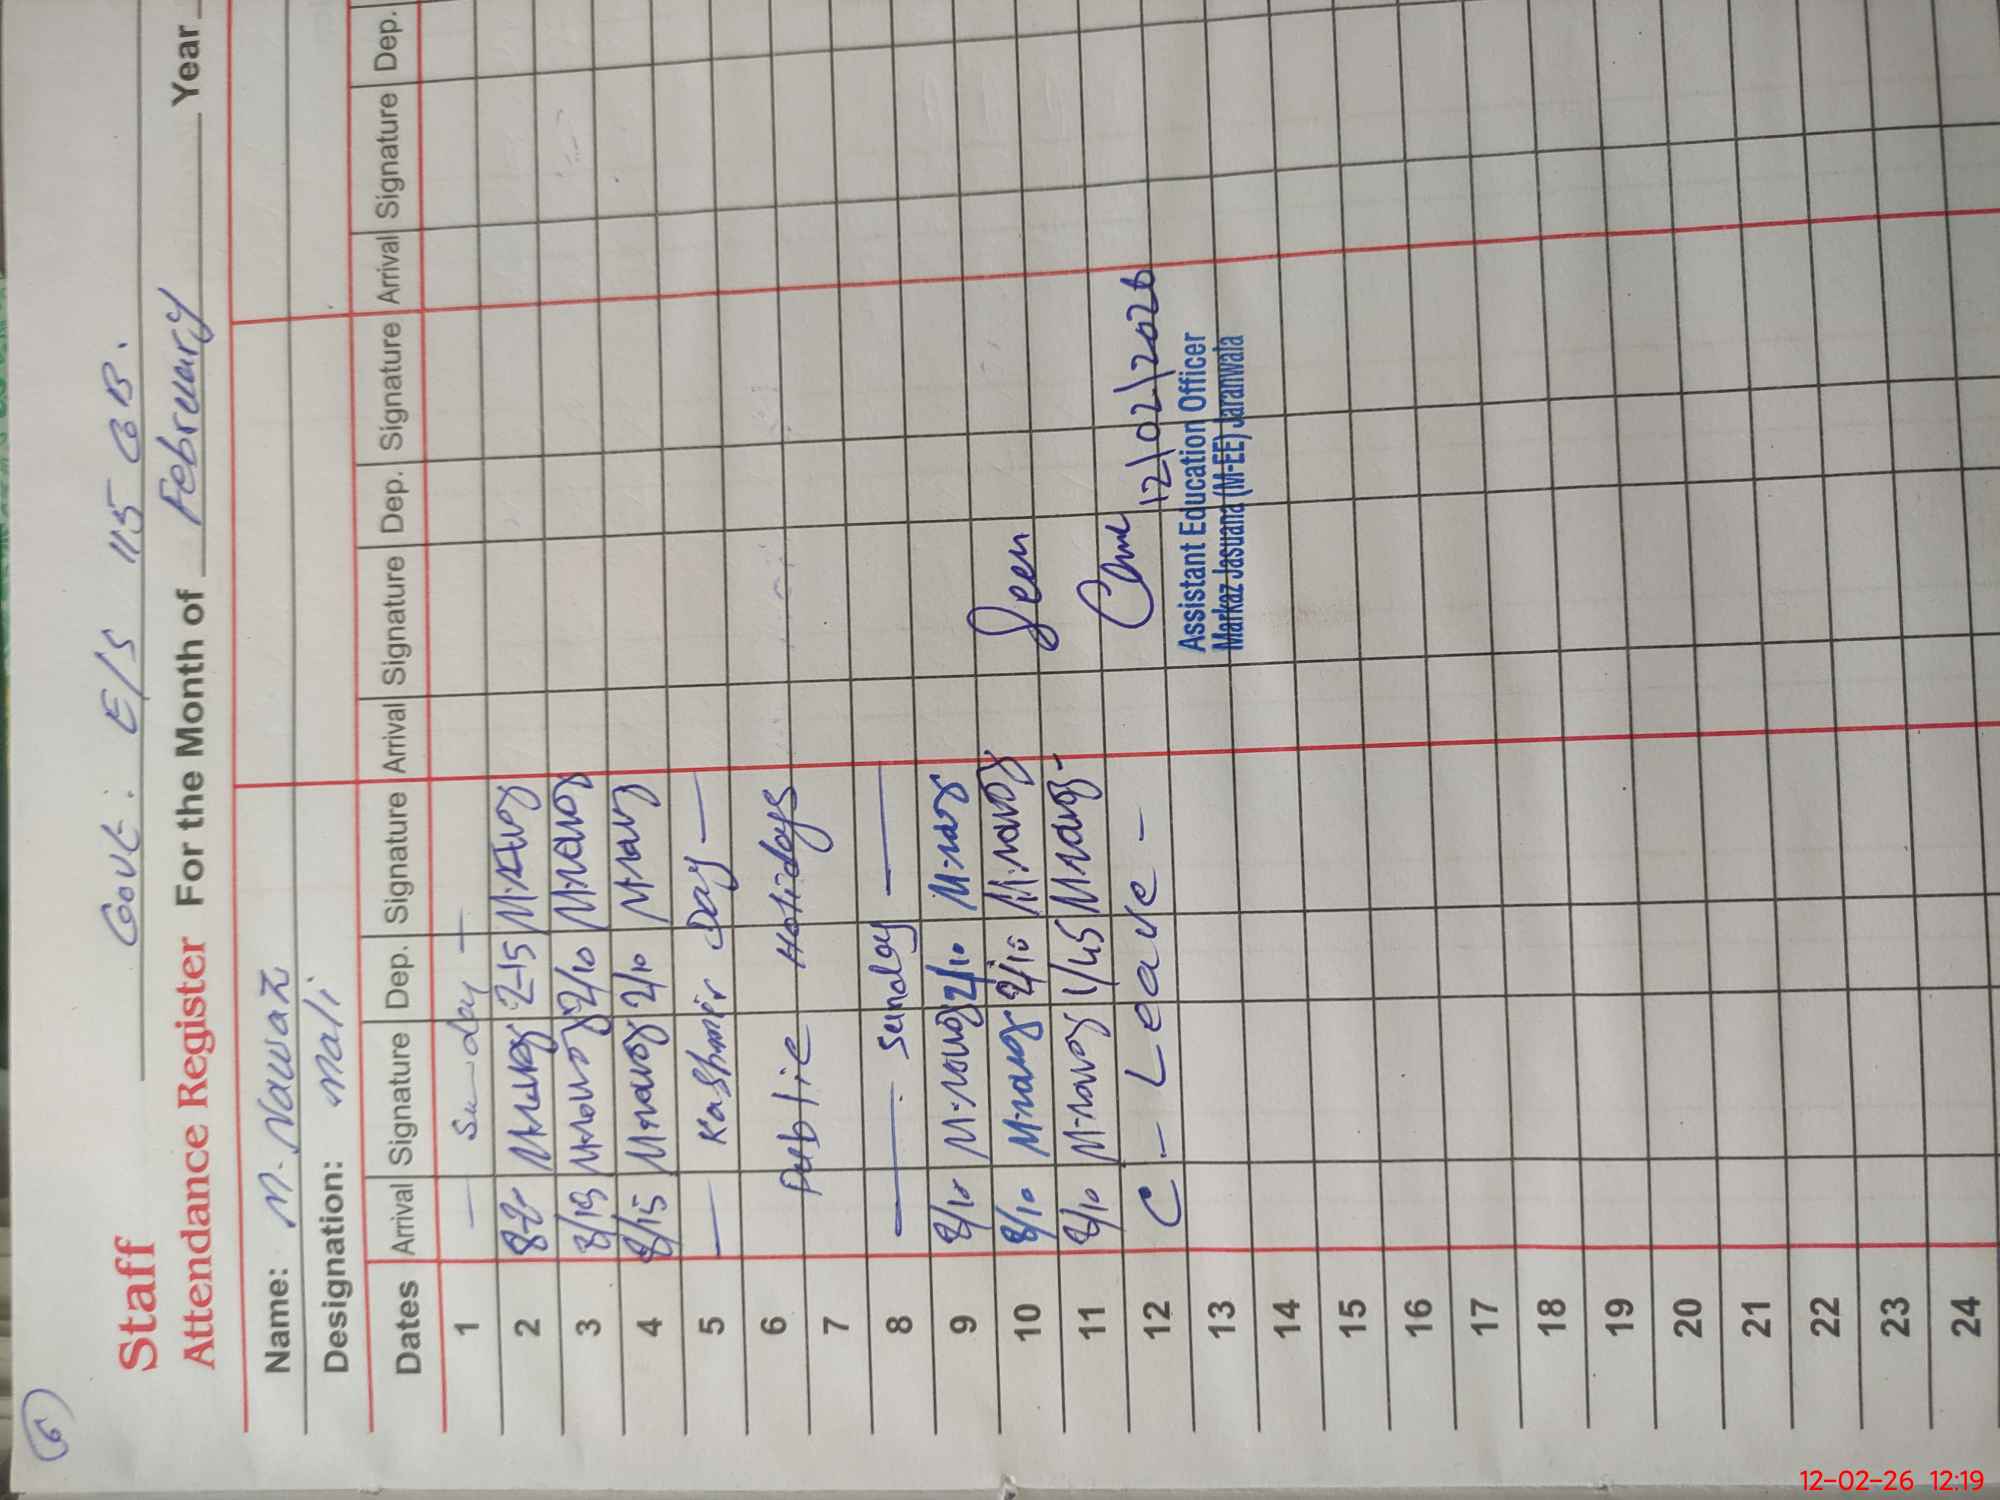 6
Govt: E/S 115 GB.
Staff
Attendance Register For the Month of February Year
Name: M. Nawaz
Designation: Mali
Dates Arrival Signature Dep. Signature Arrival Signature Dep. Signature Arrival Signature Dep.
1 — Sunday —
2 M.Nawaz 2-15 M.Nawaz
3 M.Nawaz 2/10 M.Nawaz
4 8/15 M.Nawaz 2/10 M.Nawaz
5 — Kashmir Day —
6 Public Holidays
7
8 — Sunday —
9 8/10 M.Nawaz 2/10 M.Nawaz
10 8/10 M.Nawaz 2/10 M.Nawaz Seen
11 8/10 M.Nawaz 1/45 M.Nawaz
12 C - Leave - 12/02/2026
Assistant Education Officer
Markaz Jasuana (M-EE) Jaranwala
13
14
15
16
17
18
19
20
21
22
23
24
12-02-26 12:19